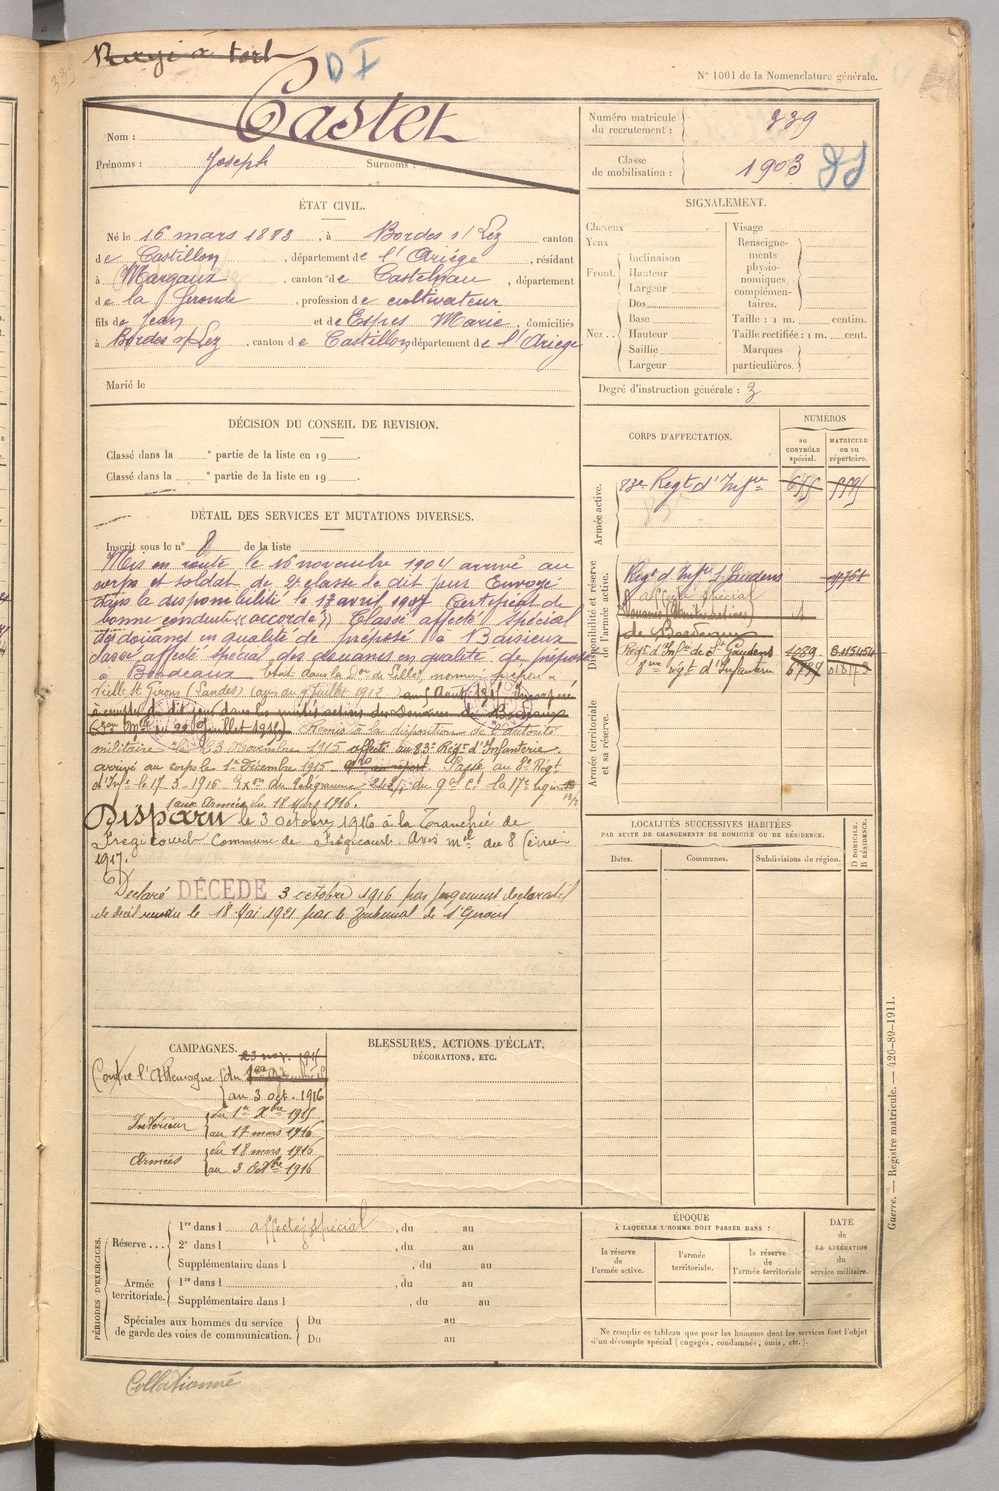 Rayé à tort
D I
N° 1001 de la Nomenclature générale.
Nom : Castet
Prénoms : Joseph Surnoms :
Numéro matricule du recrutement : 339
Classe de mobilisation : 1903
ÉTAT CIVIL.
Né le 16 mars 1883, à Bordes s/ Lez canton
de Castillon, département de l'Ariège, résidant
à Margaux, canton de Castelnau, département
de la Gironde, profession de cultivateur
fils de Jean et de Espes Marie, domiciliés
à Bordes s/Lez, canton de Castillon, département de l'Ariège
Marié le
SIGNALEMENT.
Cheveux
Yeux
Front.
Inclinaison
Hauteur
Largeur
Nez...
Dos
Base
Hauteur
Saillie
Largeur
Visage
Renseignements physionomiques complémentaires.
Taille : 1 m. centim.
Taille rectifiée : 1 m. cent.
Marques particulières.
Degré d'instruction générale : 3
DÉCISION DU CONSEIL DE REVISION.
Classé dans la ° partie de la liste en 19 .
Classé dans la ° partie de la liste en 19 .
DÉTAIL DES SERVICES ET MUTATIONS DIVERSES.
Inscrit sous le n° 8 de la liste
Mis en route le 16 novembre 1904 arrivé au
corps et soldat de 2e classe le dit jour Envoyé
dans la disponibilité le 17 avril 1907 Certificat de
bonne conduite "accordé" Classé affecté spécial
des douanes en qualité de préposé à Baisieux
Classé affecté spécial des douanes en qualité de préposé
à Bordeaux Etait dans la Don de Lille, nommé préposé à
Vielle St Girons (Landes) (avis du 9 juillet 1912
à compter du dit jour dans les unités actives des Douanes de Bordeaux
juillet 1915) Remis à la disposition de l'autorité
militaire le 23 Novembre 1915 affecté au 83e Régt d'Infanterie.
arrivé au corps le 1er Décembre 1915 Passé au 8e Régt
d'Infie le 17 3 1916 Exon du télégramme du Gal Ct la 17e région
(aux armées du 18 Mars 1916.
Disparu le 3 octobre 1916 à la Tranchée de
Frégicourt Commune de Frégicourt. Avis mel du 8 février
1917.
Déclaré DÉCÉDÉ 3 octobre 1916 par jugement déclaratif
de décès rendu le 18 Mai 1921 par le Tribunal de St Girons
CORPS D'AFFECTATION.
NUMÉROS
au CONTRÔLE spécial.
MATRICULE ou au répertoire.
Armée active.
83e Regt d'Infrie
Disponibilité et réserve de l'armée active.
Regt d'Infie St Gaudens
affecté spécial
Douanes (Unités actives)
de Bordeaux
Régt d'Infie de St Gaudens 4089
8me régt d'Infanterie
Armée territoriale et sa réserve.
LOCALITÉS SUCCESSIVES HABITÉES
PAR SUITE DE CHANGEMENTS DE DOMICILE OU DE RÉSIDENCE.
Dates.
Communes.
Subdivisions de région.
D DOMICILE. R RÉSIDENCE.
CAMPAGNES.
Contre l'Allemagne du 23 nov. 1915
au 3 oct. 1916
Intérieur du 1er Xbre 1915
au 17 mars 1916
Armées du 18 mars 1916
au 3 Octbre 1916
BLESSURES, ACTIONS D'ÉCLAT,
DÉCORATIONS, ETC.
PÉRIODES D'EXERCICES.
Réserve...
1re dans l affecté spécial, du au
2e dans l , du au
Supplémentaire dans l , du au
Armée territoriale.
1re dans l , du au
Supplémentaire dans l , du au
Spéciales aux hommes du service de garde des voies de communication.
Du au
Du au
ÉPOQUE
À LAQUELLE L'HOMME DOIT PASSER DANS :
la réserve de l'armée active.
l'armée territoriale.
la réserve de l'armée territoriale
DATE
de
LA LIBÉRATION
du
service militaire.
Ne remplir ce tableau que pour les hommes dont les services font l'objet
d'un décompte spécial (engagés, condamnés, omis, etc.).
Guerre. — Registre matricule. — 426-89-1911.
Collationné